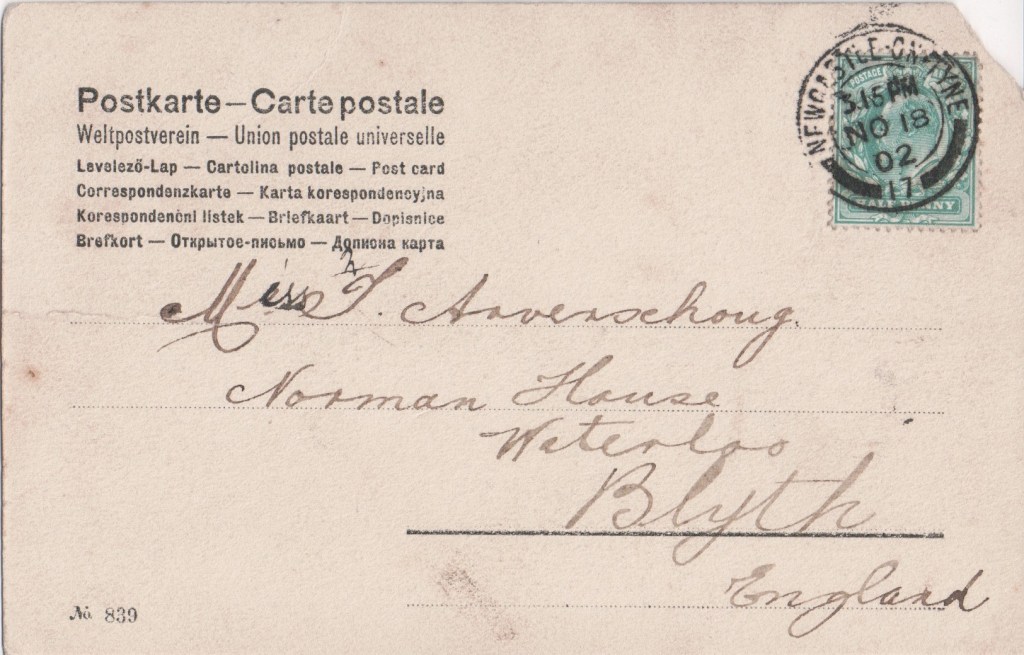 Postkarte – Carte postale
Weltpostverein — Union postale universelle
Levelező-Lap — Cartolina postale — Post card
Correspondenzkarte — Karta korespondencyjna
Korespondenční lístek — Briefkaart — Dopisnice
Brefkort — Открытое-письмо — Дописна карта
NEWCASTLE-ON-TYNE
3.15 PM
NO 18
02
17
POSTAGE
HALF PENNY
Miss J. Arverschoug.
Norman House
Waterloo
Blyth
England
No. 839